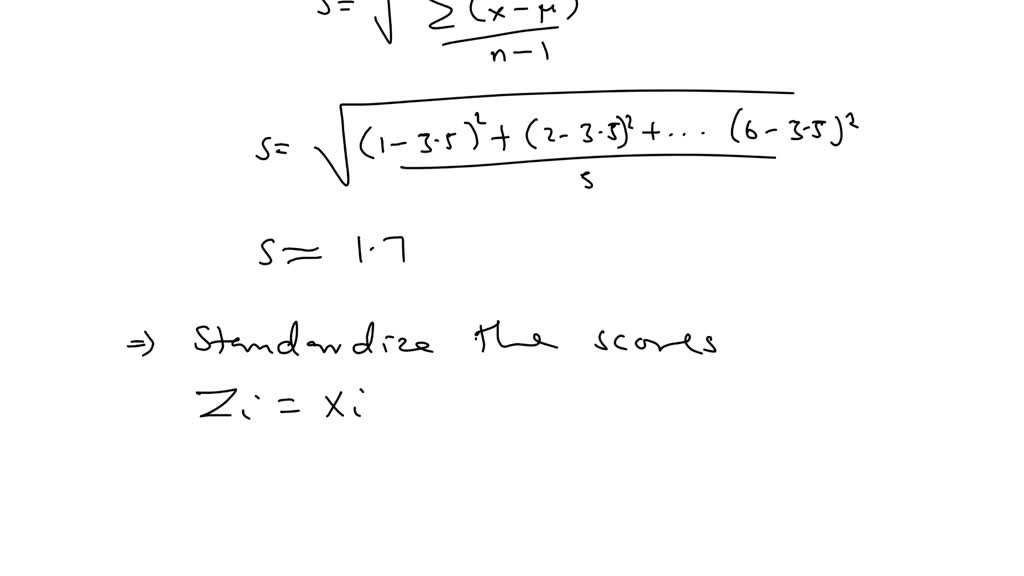 s = √ Σ(x-μ)
n-1
s = √ (1-3.5)² + (2-3.5)² + ... (6-3.5)²
5
s ≈ 1.7
⇒ Standardize the scores
Zi = xi